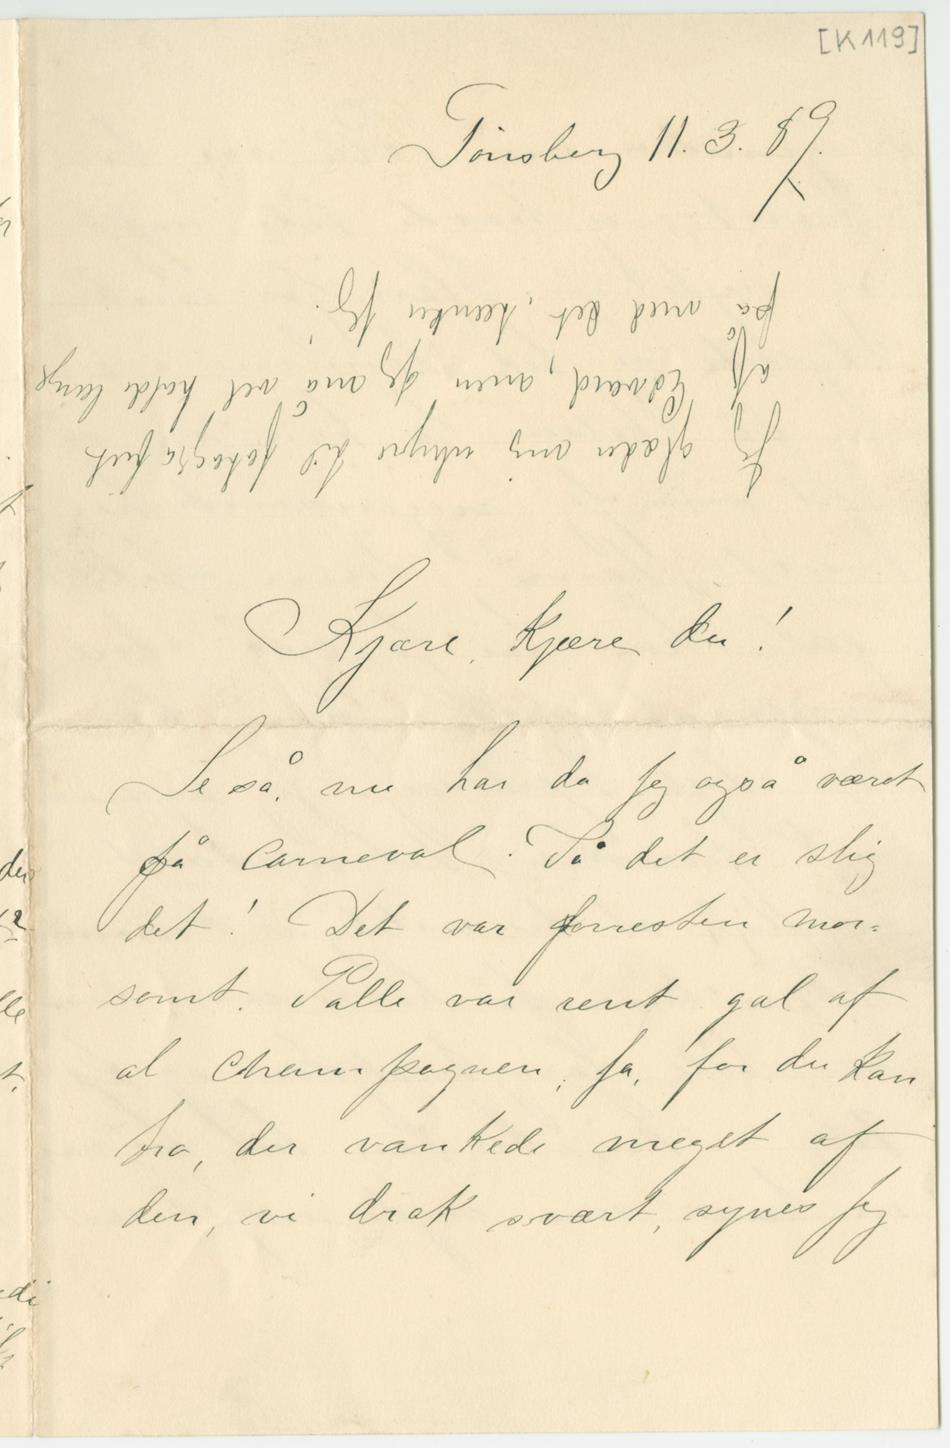 [K 119]
Tönsberg 11.3.89.
Jeg glæder mig uhyre til fotografiet
af Edvard, men jeg må vel holde længe
på med det, tænker jeg!
Kjære, kjære du!
Se så, nu har da jeg også været
på carneval. Så det er slig
det! Det var forresten mor=
somt. Palle var rent gal af
al champagnen, ja, for du kan
tro, der vankede meget af
den, vi drak svært, synes jeg